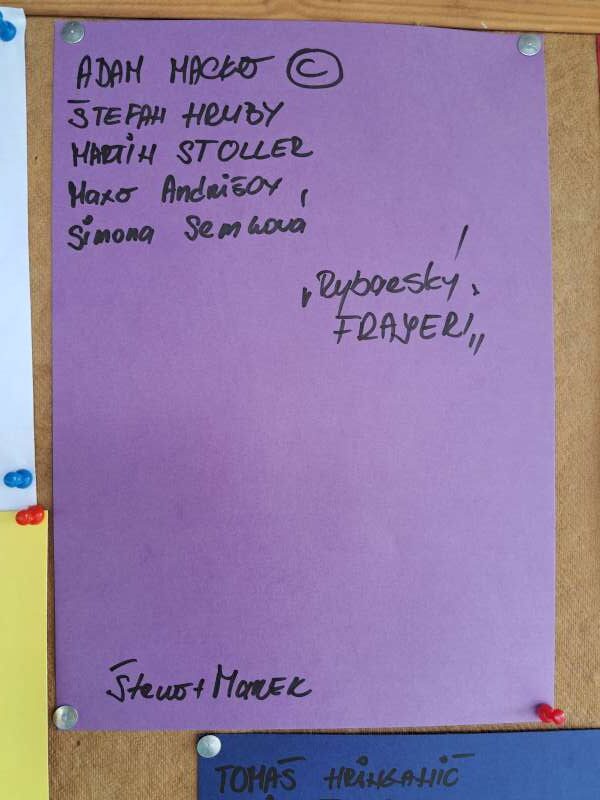 ADAM MACKO ©
ŠTEFAN HRUBY
MARTIN STOLLER
Maxo Andrišov
Simona Semkova
„Rybarsky
FRAJERI"
Števo + Marek
TOMAŠ HRINKANIČ